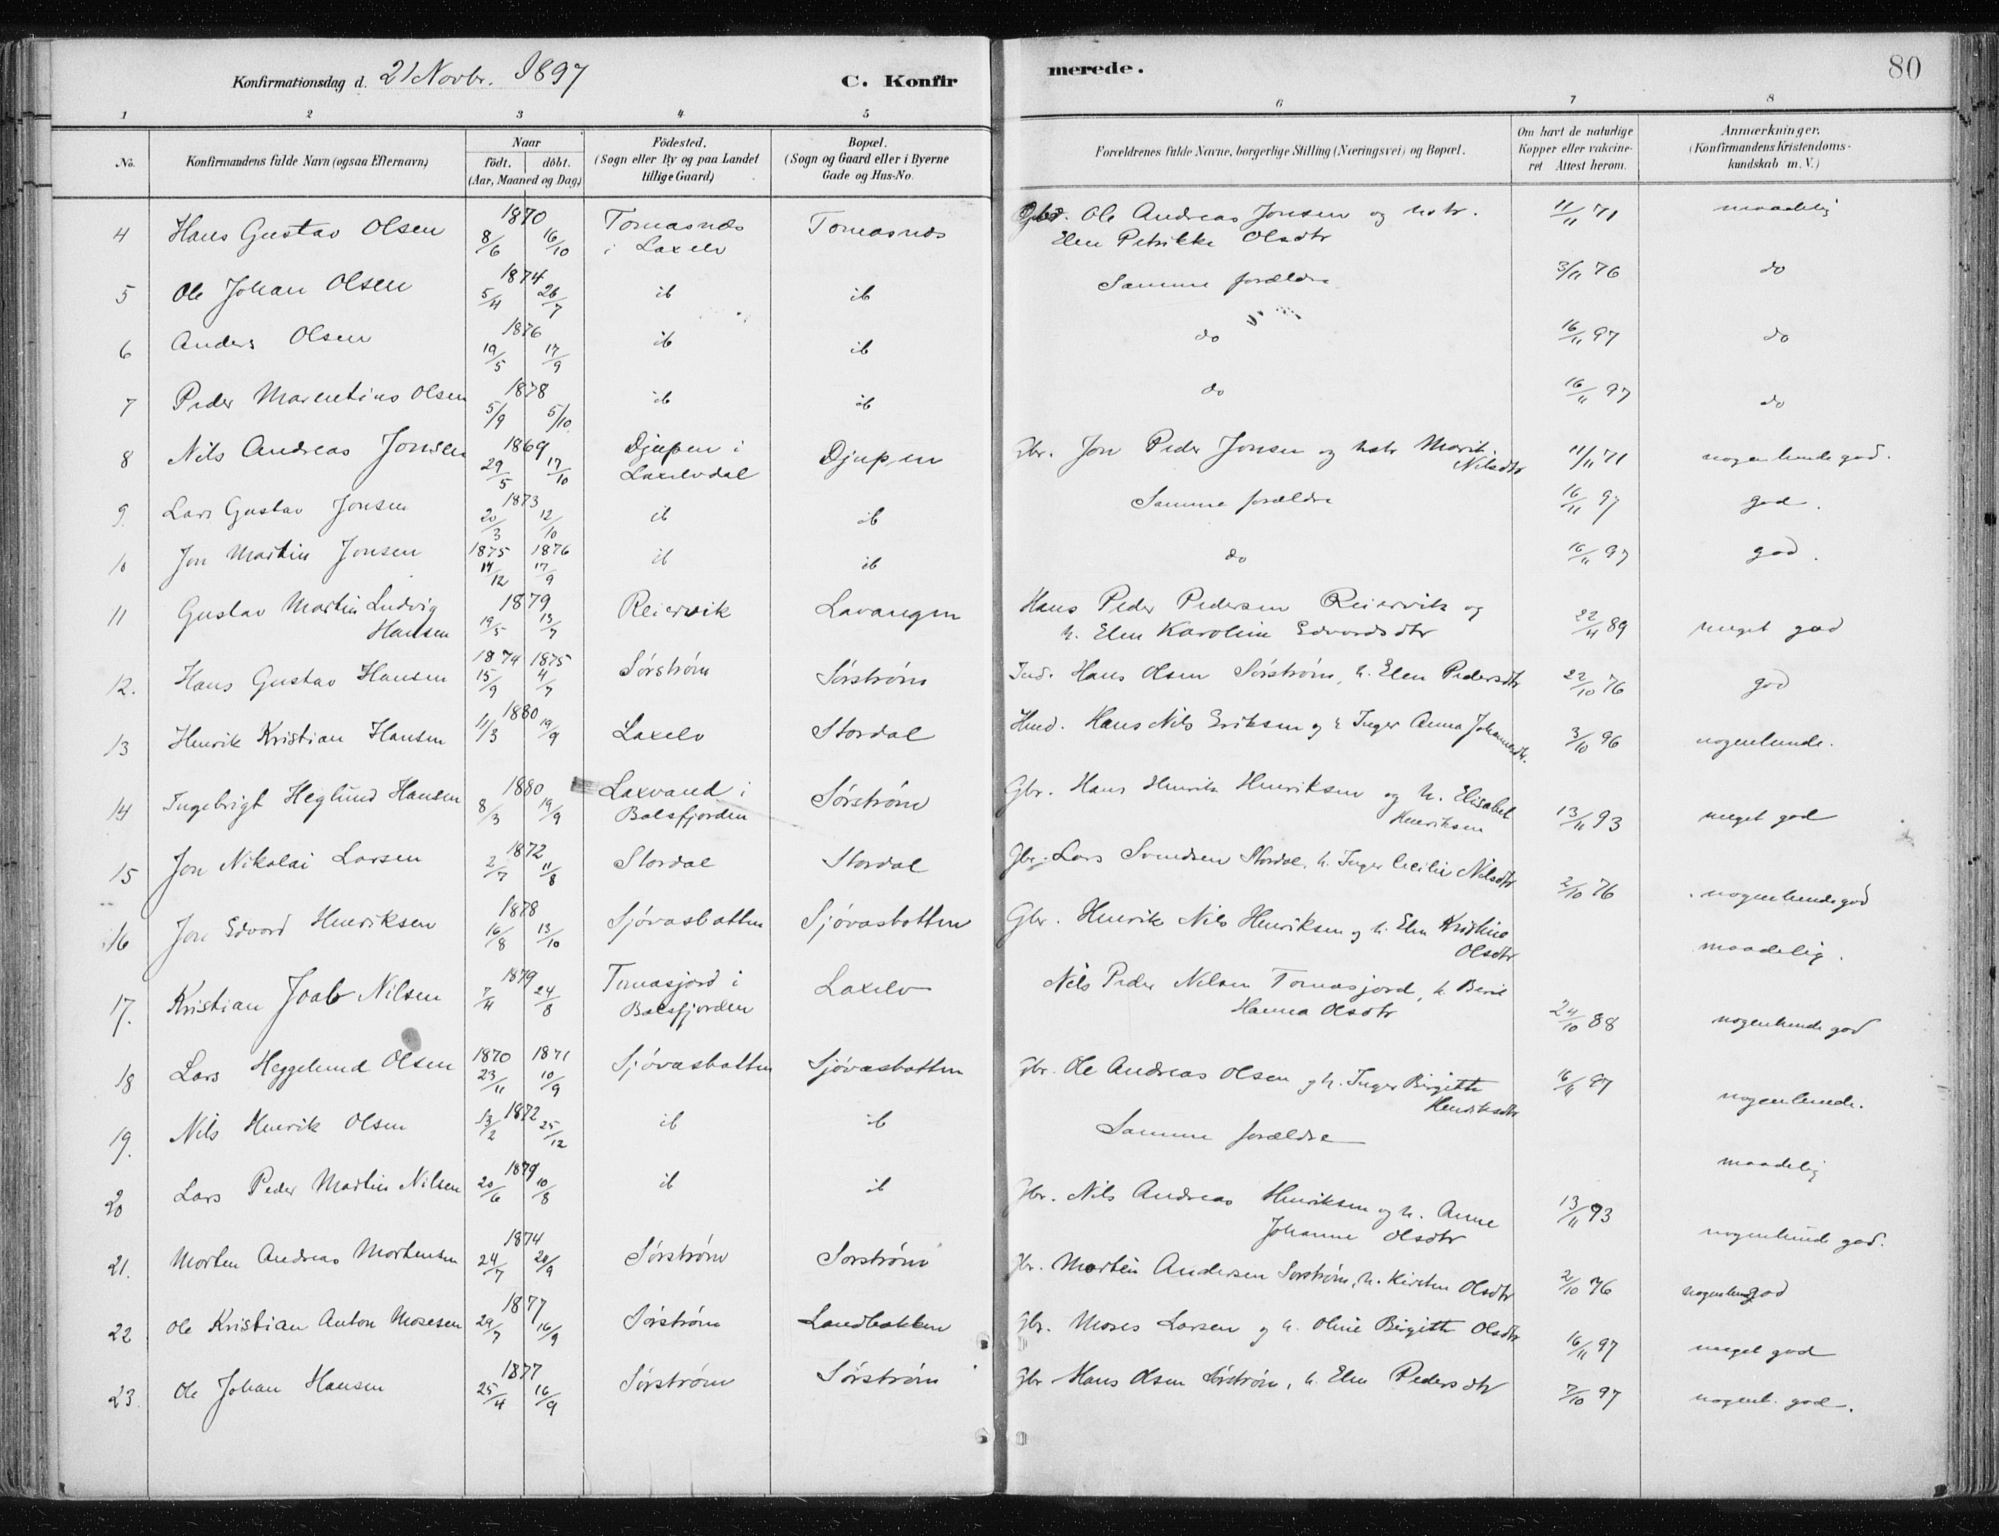 Konfirmationsdag d. 21 Novbr. 1897 C. Konfirmerede. 80
1 2 3 4 5 6 7 8
No. Konfirmandens fulde Navn (ogsaa Efternavn) Naar født. døbt. (Aar, Maaned og Dag.) Födested. (Sogn eller By og paa Landet tillige Gaard) Bopæl. (Sogn og Gaard eller i Byerne Gade og Hus-No. Forældrenes fulde Navne, borgerlige Stilling (Næringsvei) og Bopæl. Om havt de naturlige Kopper eller vakcineret Attest herom. Anmærkninger. (Konfirmandens Kristendomskundskab m. V.)
4 Hans Gustav Olsen 1870 8/6 16/10 Tomasnæs i Laxelv Tomasnæs Ole Andreas Jonsen og hstr. Elen Petrikke Olsdtr 11/11 71 maadelig
5 Ole Johan Olsen 1874 5/4 26/7 ib ib Samme forældre 3/11 76 do
6 Anders Olsen 1876 19/5 17/9 ib ib do 16/11 97 do
7 Peder Marentius Olsen 1878 5/9 5/10 ib ib do 16/11 97 do
8 Nils Andreas Jonsen 1869 29/5 17/10 Djupen i Laxelvdal Djupen Gbr. Jon Peder Jonsen og hstr Marit Nilsdtr 11/11 71 nogenlunde god.
9. Lars Gustav Jonsen 1873 20/3 12/10 ib ib Samme forældre 16/11 97 god.
10 Jon Martin Jonsen 1875 14/12 1876 17/9 ib ib do 16/11 97 god.
11 Gustav Martin Ludvig Hansen 1879 19/5 13/7 Reiervik Lavangen Hans Peder Pedersen Reiervik og h. Elen Karoline Edvardsdtr 22/11 89 meget god
12. Hans Gustav Hansen 1874 15/9 1875 4/7 Sørstrøm Sørstrøm Ind. Hans Olsen Sørstrøm, h. Elen Pedersdtr 22/10 76 god
13 Henrik Kristian Hansen 1880 11/3 19/9 Laxelv Stordal Hmd. Hans Nils Eriksen og h Inger Anna Johannesdtr. 3/10 96 nogenlunde.
14 Ingebrigt Heglund Hansen 1880 8/3 19/9 Laxvand i Balsfjorden Sørstrøm Gbr. Hans Henrik Henriksen og h. Elisabet Henriksen 13/11 93 meget god
15 Jon Nikolai Larsen 1872 2/7 11/8 Stordal Stordal Gbr. Lars Svendsen Stordal, h. Inger Cecilie Nilsdtr 2/10 76 nogenlunde god
16 Jon Edvard Henriksen 1878 16/8 13/10 Sjøvasbotten Sjøvasbotten Gbr. Henrik Nils Henriksen og h. Elen Kristine Olsdtr maadelig.
17. Kristian Joab Nilsen 1879 7/4 24/8 Tomasjord i Balsfjorden Laxelv Nils Peder Nilsen Tomasjord, h. Berit Hanna Olsdtr 24/10 88 nogenlunde god
18 Lars Heggelund Olsen 1870 23/11 1871 10/9 Sjøvasbotten Sjøvasbotten Gbr. Ole Andreas Olsen og h. Inger Birgitte Henriksdtr 16/11 97 nogenlunde.
19. Nils Henrik Olsen 1872 13/2 25/12 ib ib Samme forældre maadelig
20 Lars Peder Martin Nilsen 1879 20/6 10/8 ib ib Gbr. Nils Andreas Henriksen og h. Anne Johanne Olsdtr 13/11 93 nogenlunde god.
21. Morten Andreas Mortensen 1874 24/7 20/9 Sørstrøm Sørstrøm Gbr. Morten Andersen Sørstrøm, h. Kirsten Olsdtr 2/10 76 nogenlund god
22 Ole Kristian Anton Mosesen 1877 29/7 16/9 Sørstrøm Landbakken Gbr. Moses Larsen og h. Oline Birgitte Olsdtr 16/11 97 meget god
23. Ole Johan Hansen 1877 25/4 16/9 Sørstrøm Sørstrøm Gbr Hans Olsen Sørstrøm, h. Elen Pedersdtr 7/10 97 nogenl. god.